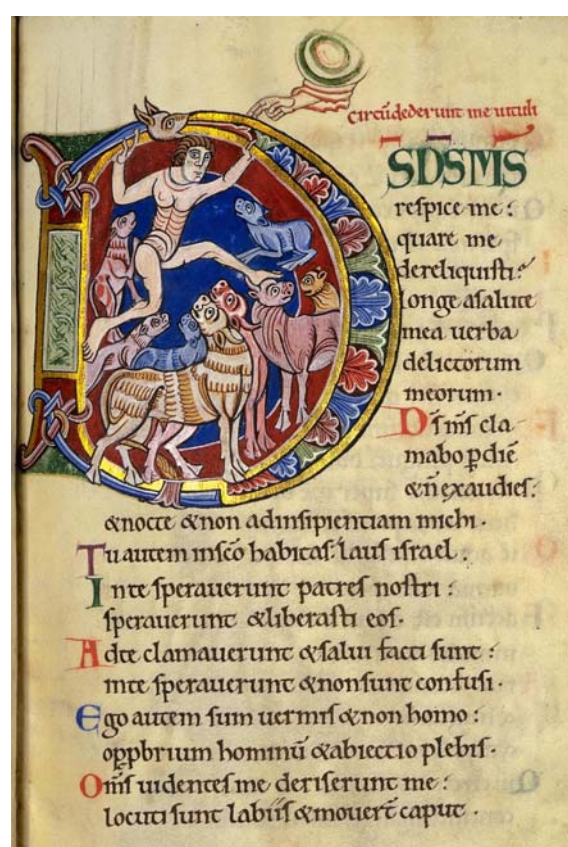 Circūdederunt me uituli
DSDSMS
respice me :
quare me
dereliquisti :
longe asalute
mea uerba
delictorum
meorum .
Ds̄ ms̄ cla
mabo ꝑ diē
&n̄ exaudies :
&nocte &non adinsipientiam michi .
Tu autem inscō habitas : laus israel .
Inte sperauerunt patres nostri :
sperauerunt &liberasti eos .
Adte clamauerunt &salui facti sunt :
inte sperauerunt &nonsunt confusi .
Ego autem sum uermis &non homo :
opꝑbrium hominū &abiectio plebis .
Om̄s uidentes me deriserunt me :
locuti sunt labiis &mouer̄t caput .